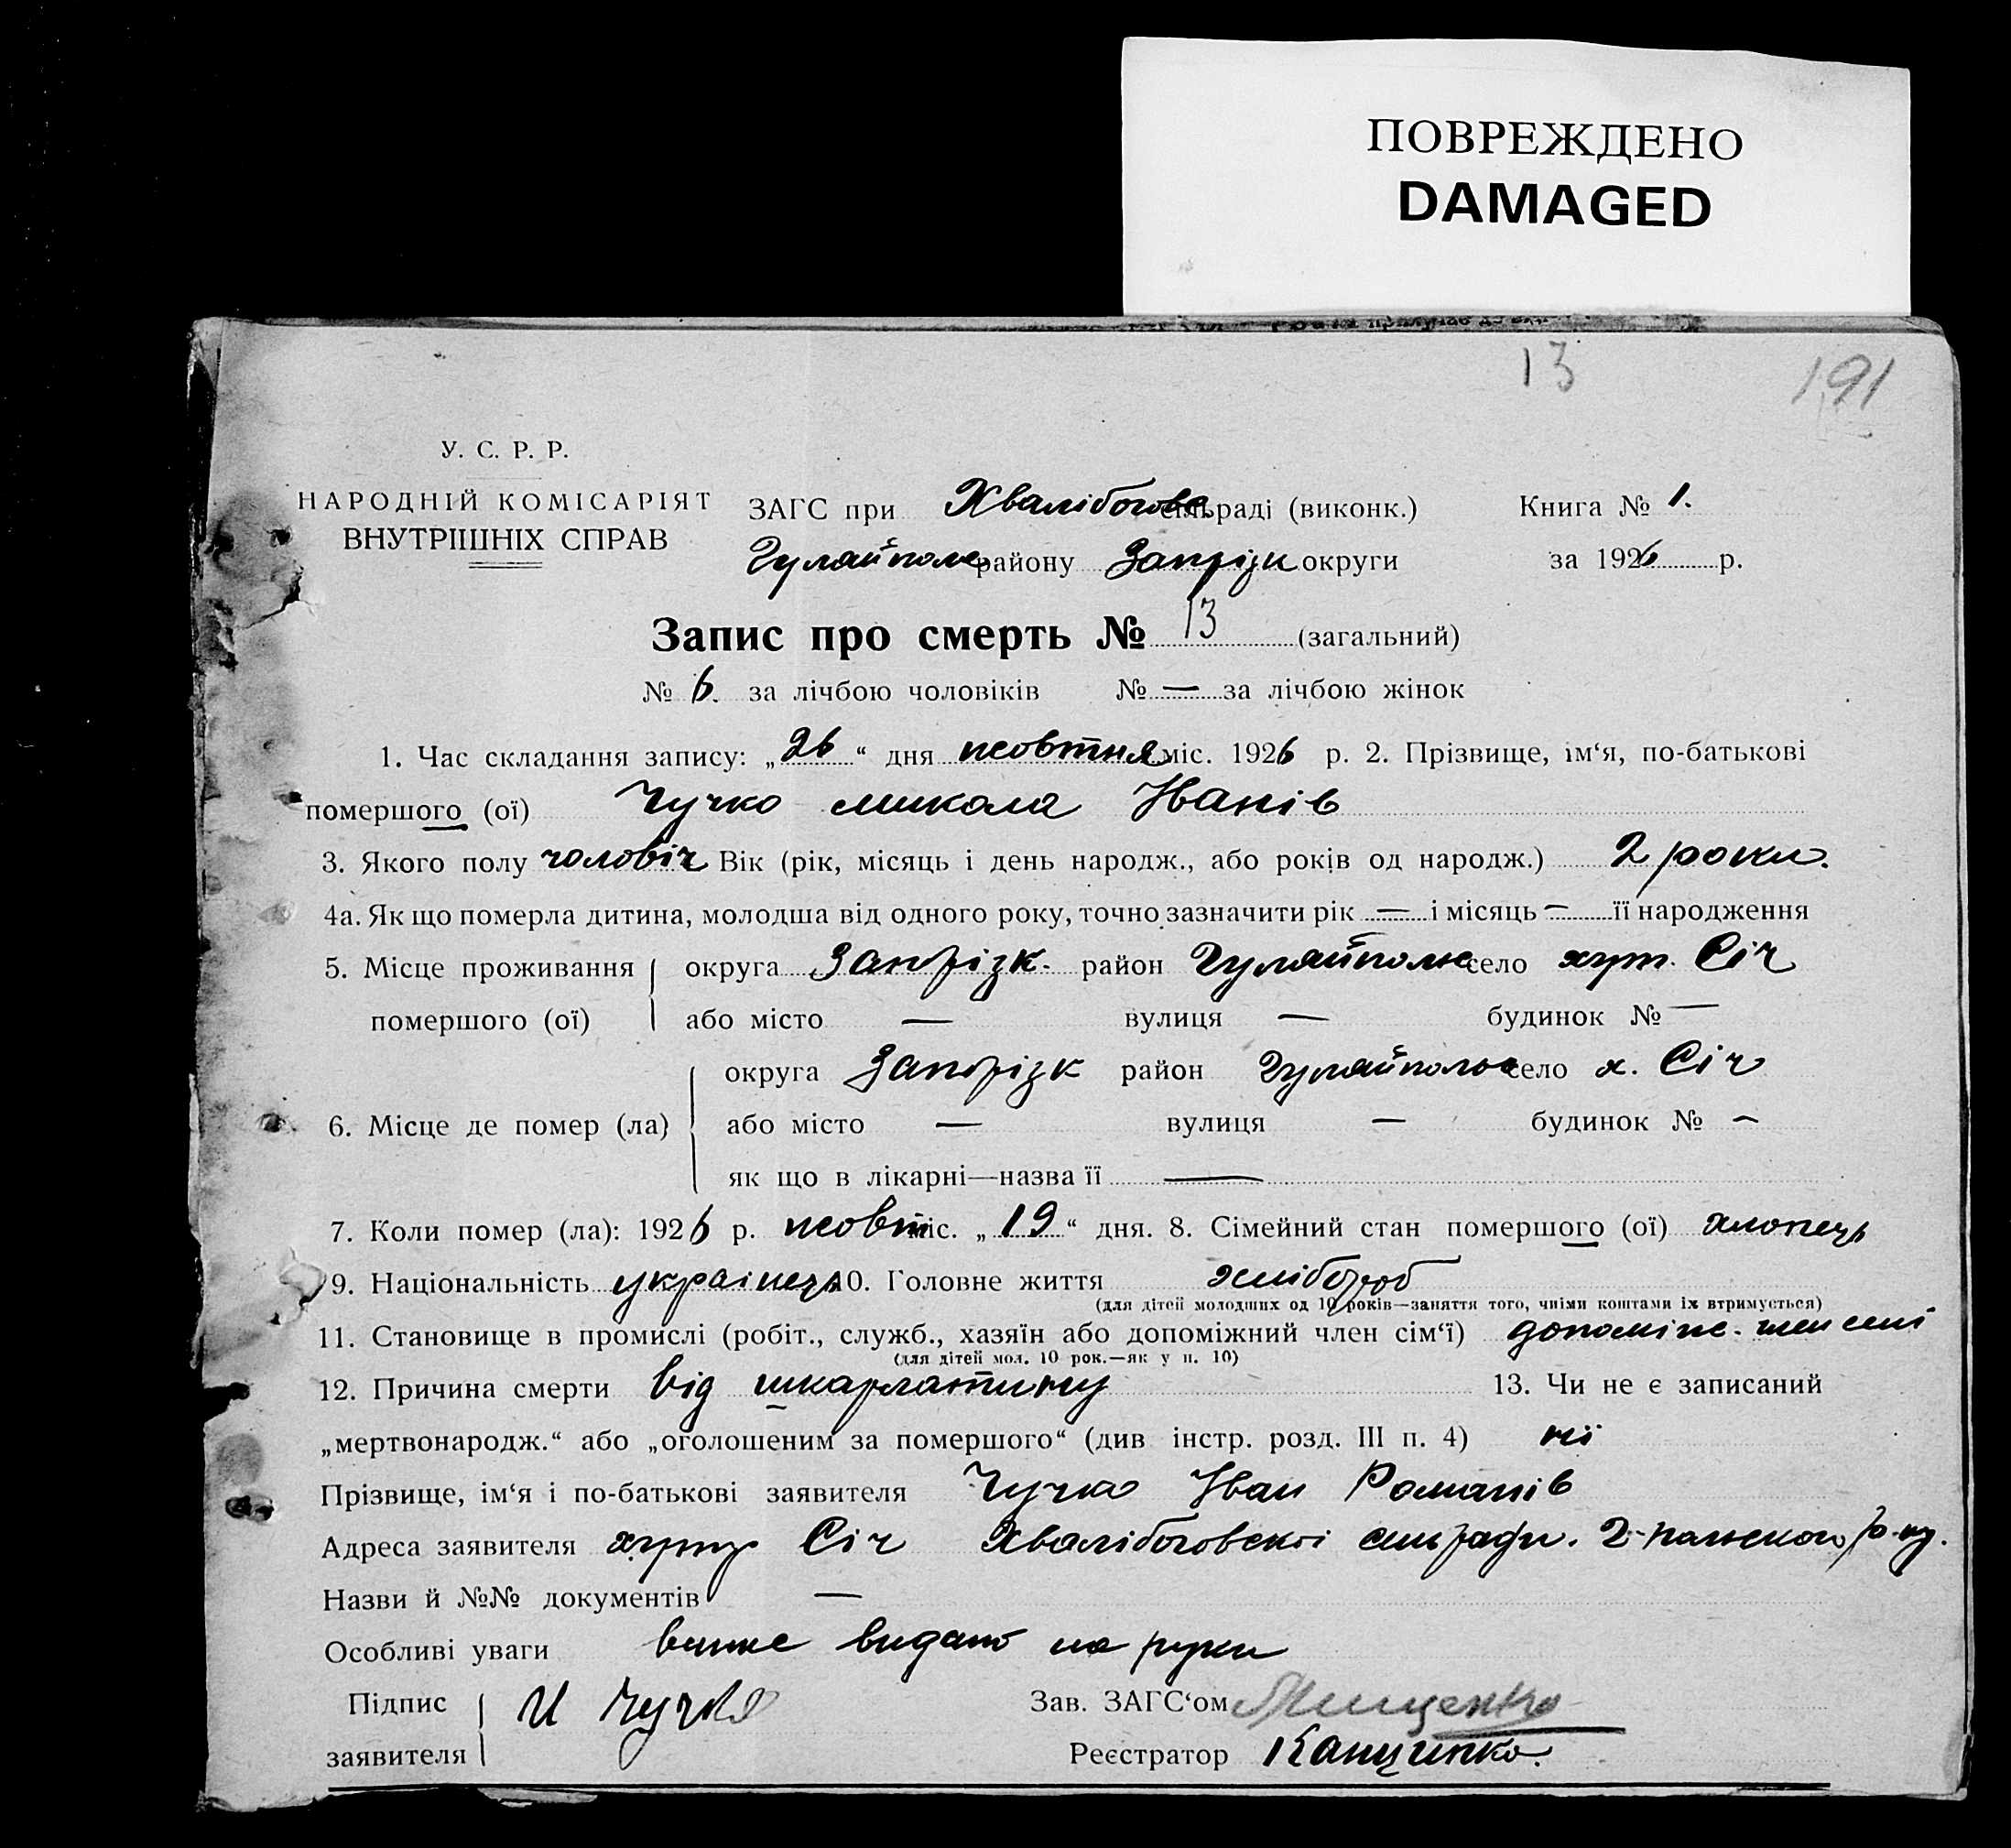 ПОВРЕЖДЕНО
DAMAGED
13
191
У. С. Р. Р.
НАРОДНІЙ КОМІСАРІЯТ
ВНУТРІШНІХ СПРАВ
ЗАГС при Хвалібогов. сільраді (виконк.) Книга № 1.
Гуляйполе району Запрізк округи за 1926 р.
Запис про смерть № 13 (загальний)
№ 6. за лічбою чоловіків № — за лічбою жінок
1. Час складання запису: „26“ дня жовтня міс. 1926 р. 2. Прізвище, ім‘я, по-батькові
помершого (ої) Чучко микола Іванів
3. Якого полу чоловіч Вік (рік, місяць і день народж., або років од народж.) 2 роки.
4а. Як що померла дитина, молодша від одного року, точно зазначити рік — і місяць — її народження
5. Місце проживання округа Запорізк. район Гуляйполе село хут. Січ
помершого (ої) або місто — вулиця — будинок № —
округа Запорізк район Гуляйполе село х. Січ
6. Місце де помер (ла) або місто — вулиця — будинок № —
як що в лікарні—назва її —
7. Коли помер (ла): 1926 р. жовт міс. „19“ дня. 8. Сімейний стан помершого (ої) хлопець
9. Національність українець 10. Головне життя хлібороб
(для дітей молодших од 10 років—заняття того, чиїми коштами їх втримується)
11. Становище в промислі (робіт., служб., хазяїн або допоміжний член сім‘ї) допоміж. член сімї
(для дітей мол. 10 рок.—як у п. 10)
12. Причина смерти від шкарлатини 13. Чи не є записаний
„мертвонародж.“ або „оголошеним за помершого“ (див інстр. розд. III п. 4) ні
Прізвище, ім‘я і по-батькові заявителя Чучко Іван Романів
Адреса заявителя хутір Січ Хвалібоговської сільради. Г-польского р-ну.
Назви й №№ документів —
Особливі уваги видано на руки
Підпис И Чучко Зав. ЗАГС‘ом Мищенко
заявителя Реєстратор